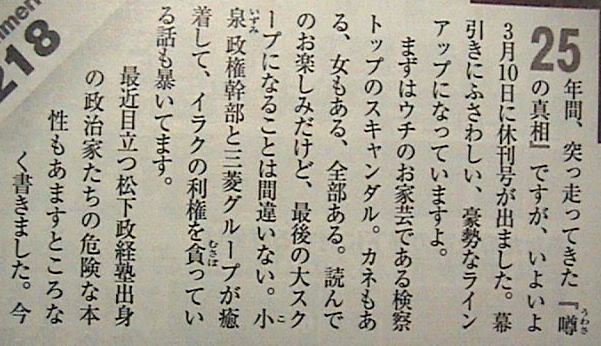 25年間、突っ走ってきた『噂
の真相』ですが、いよいよ
3月10日に休刊号が出ました。幕
引きにふさわしい、豪勢なライン
アップになっていますよ。
まずはウチのお家芸である検察
トップのスキャンダル。カネもあ
る、女もある、全部ある。読んで
のお楽しみだけど、最後の大スク
ープになることは間違いない。小
泉政権幹部と三菱グループが癒
着して、イラクの利権を貪ってい
る話も暴いてます。
最近目立つ松下政経塾出身
の政治家たちの危険な本
性もあますところな
く書きました。今
218